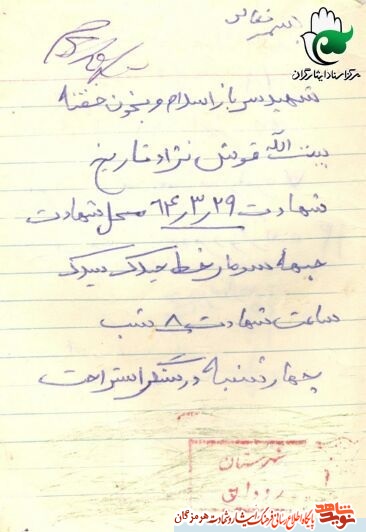 باسمه تعالی
مرکز اسناد ایثارگران
شهید سرباز اسلام و بخون خفته
بیت الله قوش نژاد تاریخ
شهادت ۶۴٫۳٫۲۹ محل شهادت
جبهه سومار خط
ساعت شهادت ۸ شب
چهارشنبه در سنگر استراحت
شهرستان
رودان
پایگاه اطلاع رسانی فرهنگ ایثار و شهادت هرمزگان